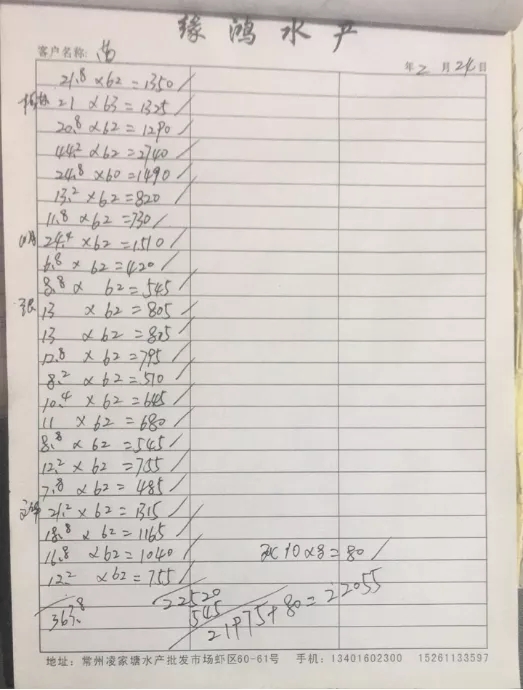 缘鸿水产
客户名称:
年2月24日
21.8×62=1350/
21×63=1325/
20.8×62=1290/
44.2×62=2740/
24.8×60=1490/
13.2×62=820/
11.8×62=730/
24.4×62=1510/
6.8×62=420/
8.8×62=545/
张 13×62=805/
13×62=805/
12.8×62=795/
8.2×62=510/
10.4×62=645/
11×62=680/
8.8×62=545/
12.2×62=755/
7.8×62=485/
21.2×62=1315/
18.8×62=1165/
16.8×62=1040/ 10×8=80/
12.2×62=755/
363.8 22520
545
21975+80=22055
地址:常州凌家塘水产批发市场虾区60-61号 手机:13401602300 15261133597